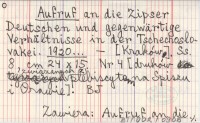 Aufruf an die Zipser
Deutschen und gegenwärtige
Verhältnisse in der Tschechoslo-
vakei. 1920... - [Kraków], Ss.
8, cm 24 x 15 Nr 4 [druków
związanych z plebiscytem na Spiszu
i Orawie] BJ
Zawiera: Aufruf an die